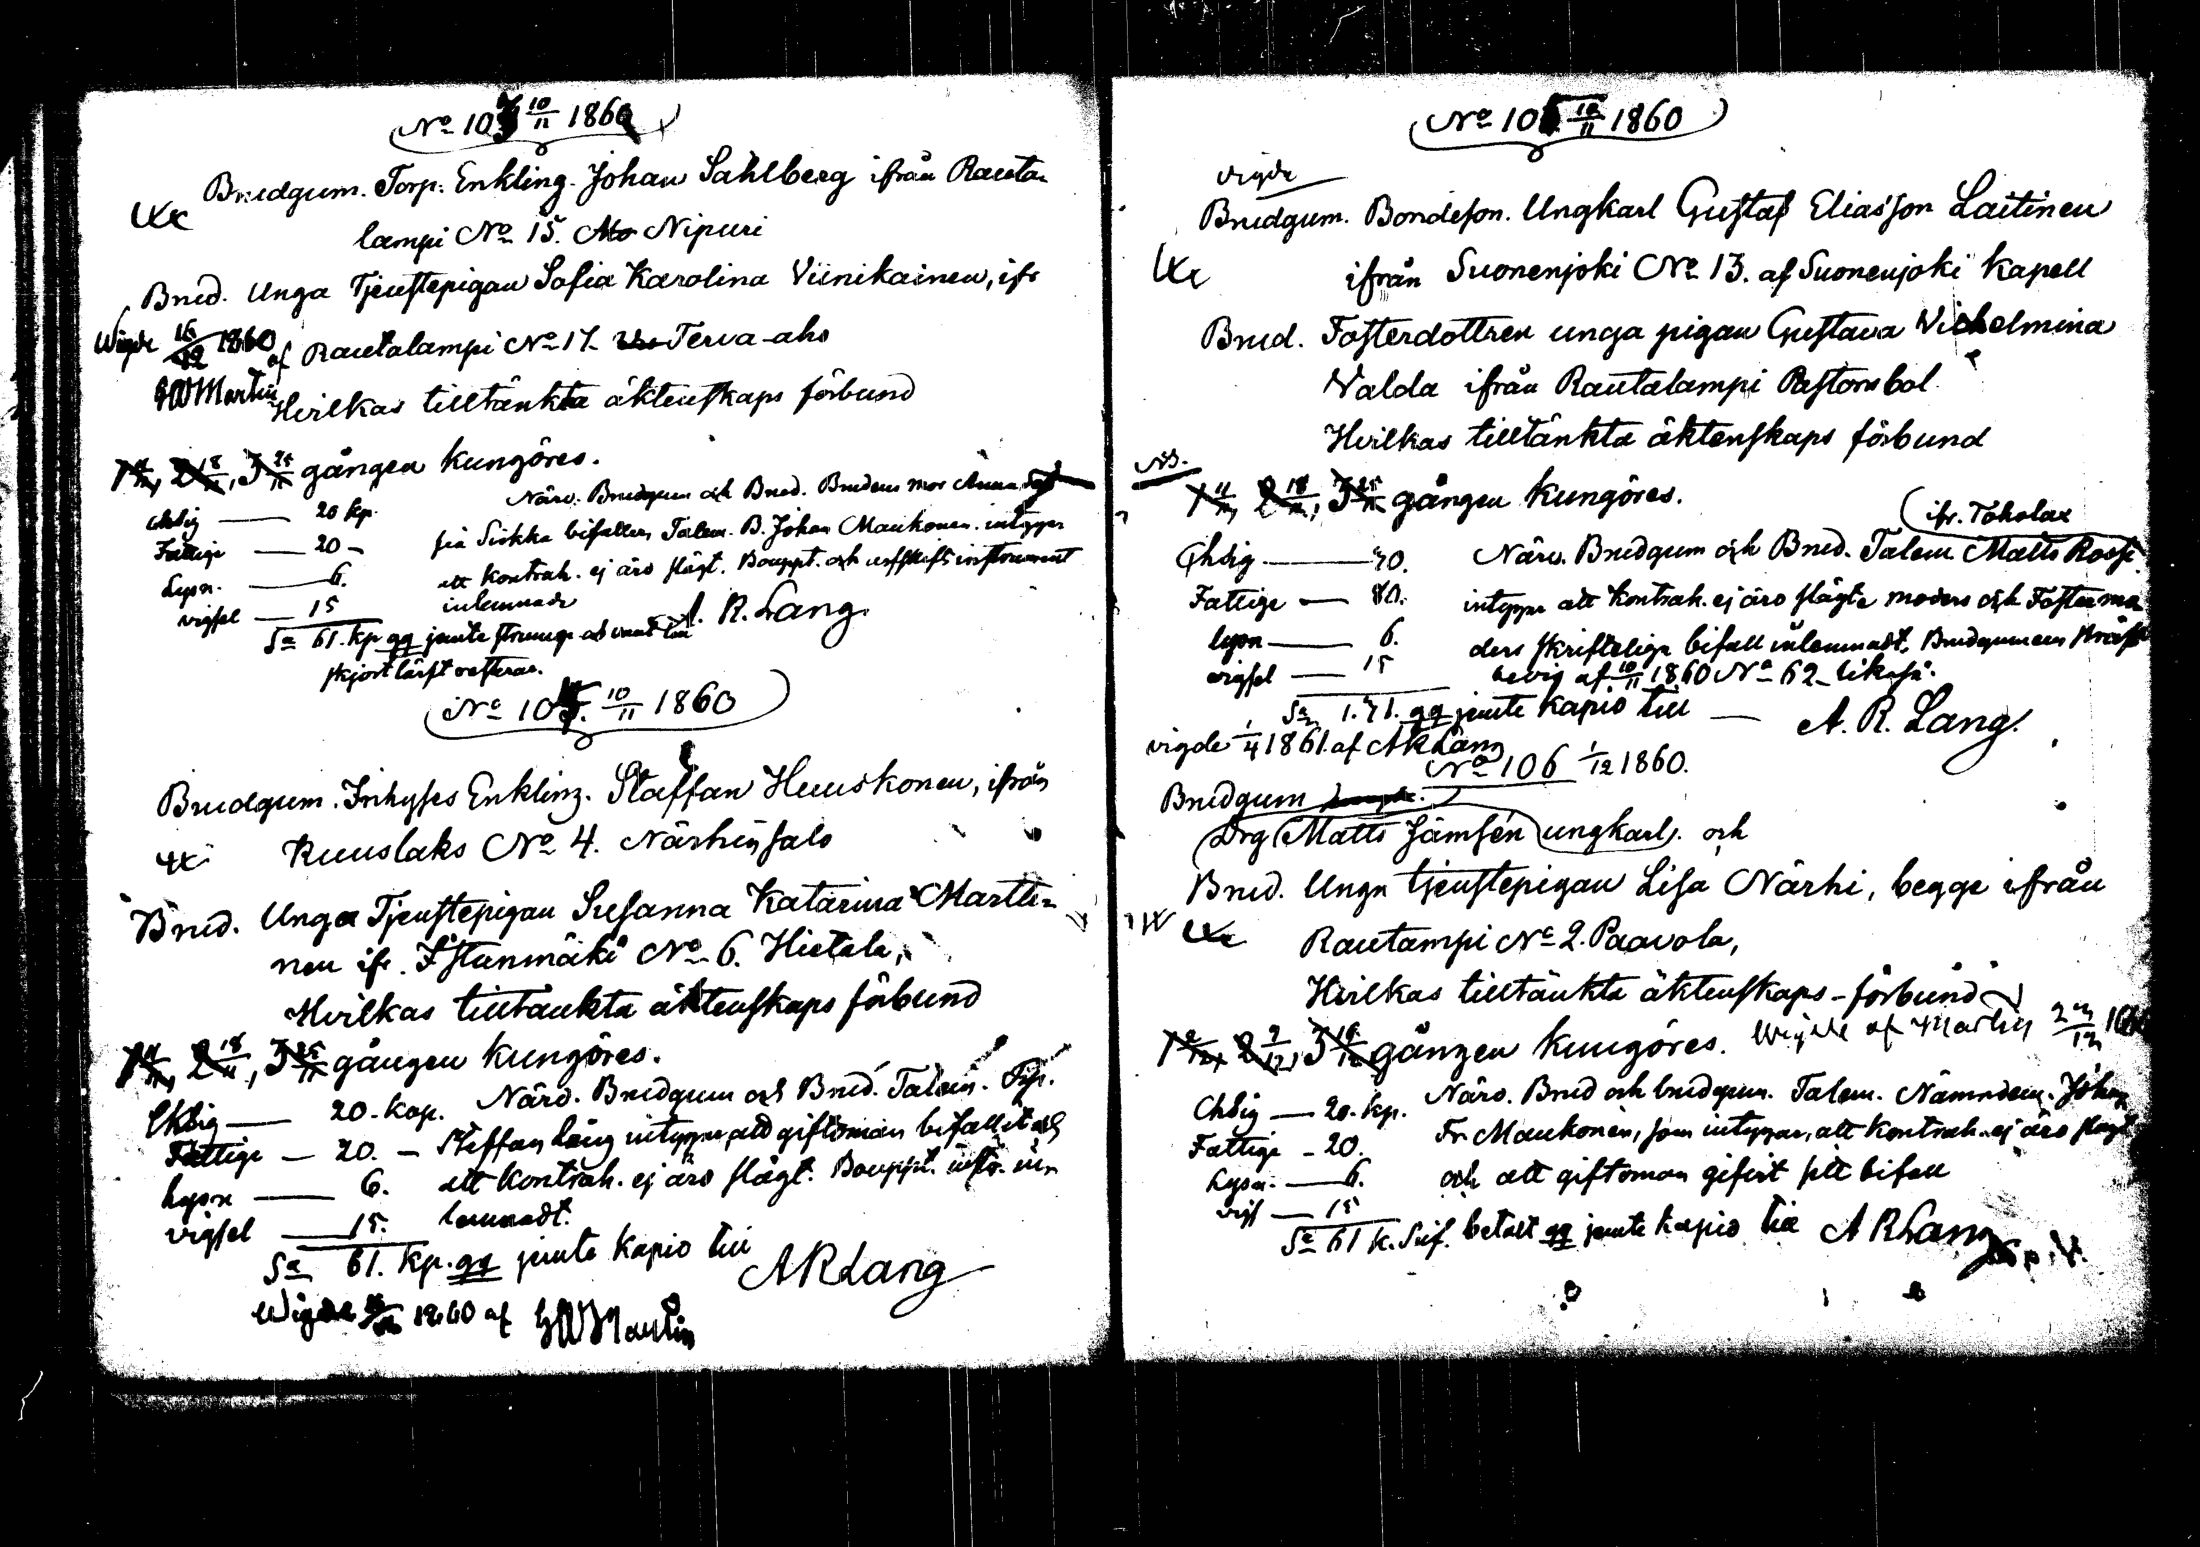 No 103 10/11 1860
Brudgum. Torp. Enkling. Johan Sahlberg ifrån Rauta-
lampi No 15. Nipuri
Brud. Unga Tjenstepigan Sofia Karolina Viinikainen, ifr
Wigde 16/12 1860 af Rautalampi No 17. Terva-aho
GWMartin Hvilkas tilltänkta äktenskaps förbund
1 11/11, 2 18/11, 3 25/11 gången kungöres.
Närv. Brudgum och Brud. Brudens mor Anna
20 kp. fia Sirkka bifaller, Talem. B. Johan Maukonen. intygar
Fattige — 20 — att kontrah. ej äro slägt. Bouppt. och arfskifts instrument
Lysn. — 6. inlemnade
vigsel — 15 A. R. Lang.
Sa 61. kp gq jemte
skjortlärft
No 104. 10/11 1860
Brudgum. Inhyses Enkling. Staffan Huuskonen, ifrån
Kuuslaks No 4. Närhinsalo
Brud. Unga Tjenstepigan Susanna Katarina Martti-
nen ifr. Istunmäki No 6. Hietala,
Hvilkas tilltänkta äktenskaps förbund
1 11/11, 2 18/11, 3 25/11 gången kungöres.
Närv. Brudgum och Brud. Talem.
20. kop. Staffan Lång intygar att giftoman bifallit och
Fattige — 20. — att kontrah. ej äro slägt. Bouppt. instr. in-
Lysn — 6. lemnadt.
vigsel — 15.
Sa 61. kp. gq jemte kapio till
ARLang
Wigde 1860 af GWMartin
No 105 10/11 1860
vigde
Brudgum. Bondeson. Ungkarl Gustaf Eliasson Laitinen
ifrån Suonenjoki No 13. af Suonenjoki Kapell
Brud. Fosterdottren unga pigan Gustava Vilhelmina
Valda ifrån Rautalampi Pastorsbol
Hvilkas tilltänkta äktenskaps förbund
NB.
1 11/11, 2 18/11, 3 25/11 gången kungöres.
ifr. Toholax
70. Närv. Brudgum och Brud. Talem Matts Rossi
Fattige — 80. intygar att kontrah. ej äro slägte moders och Fostermo
lysn — 6. ders skriftelige bifall inlemnadt, Brudgummens
vigsel — 15 bevis af 10/11 1860 No 62 likaså.
Sa 1.71. gq jemte kapio till — A. R. Lang.
vigde 1/4 1861. af ARLang
No 106 1/12 1860.
Brudgum
Drg Matts Jämsén ungkarl. och
Brud. Unga tjenstepigan Lisa Närhi, begge ifrån
Rautampi No 2. Paavola,
Hvilkas tilltänkta äktenskaps-förbund
1 2/12, 2 9/12, 3 16/12 gången kungöres. Wigde af Martin
20. kp. Närv. Brud och brudgum. Talem. Nämndem. Johan
Fattige — 20. Fr. Maukonen, som intygar, att kontrah. ej äro slägt
Lysn. — 6. och att giftoman gifvit sitt bifall
vigs — 15
Sa 61 k. Silf. betalt gq jemte kapio till ARLang